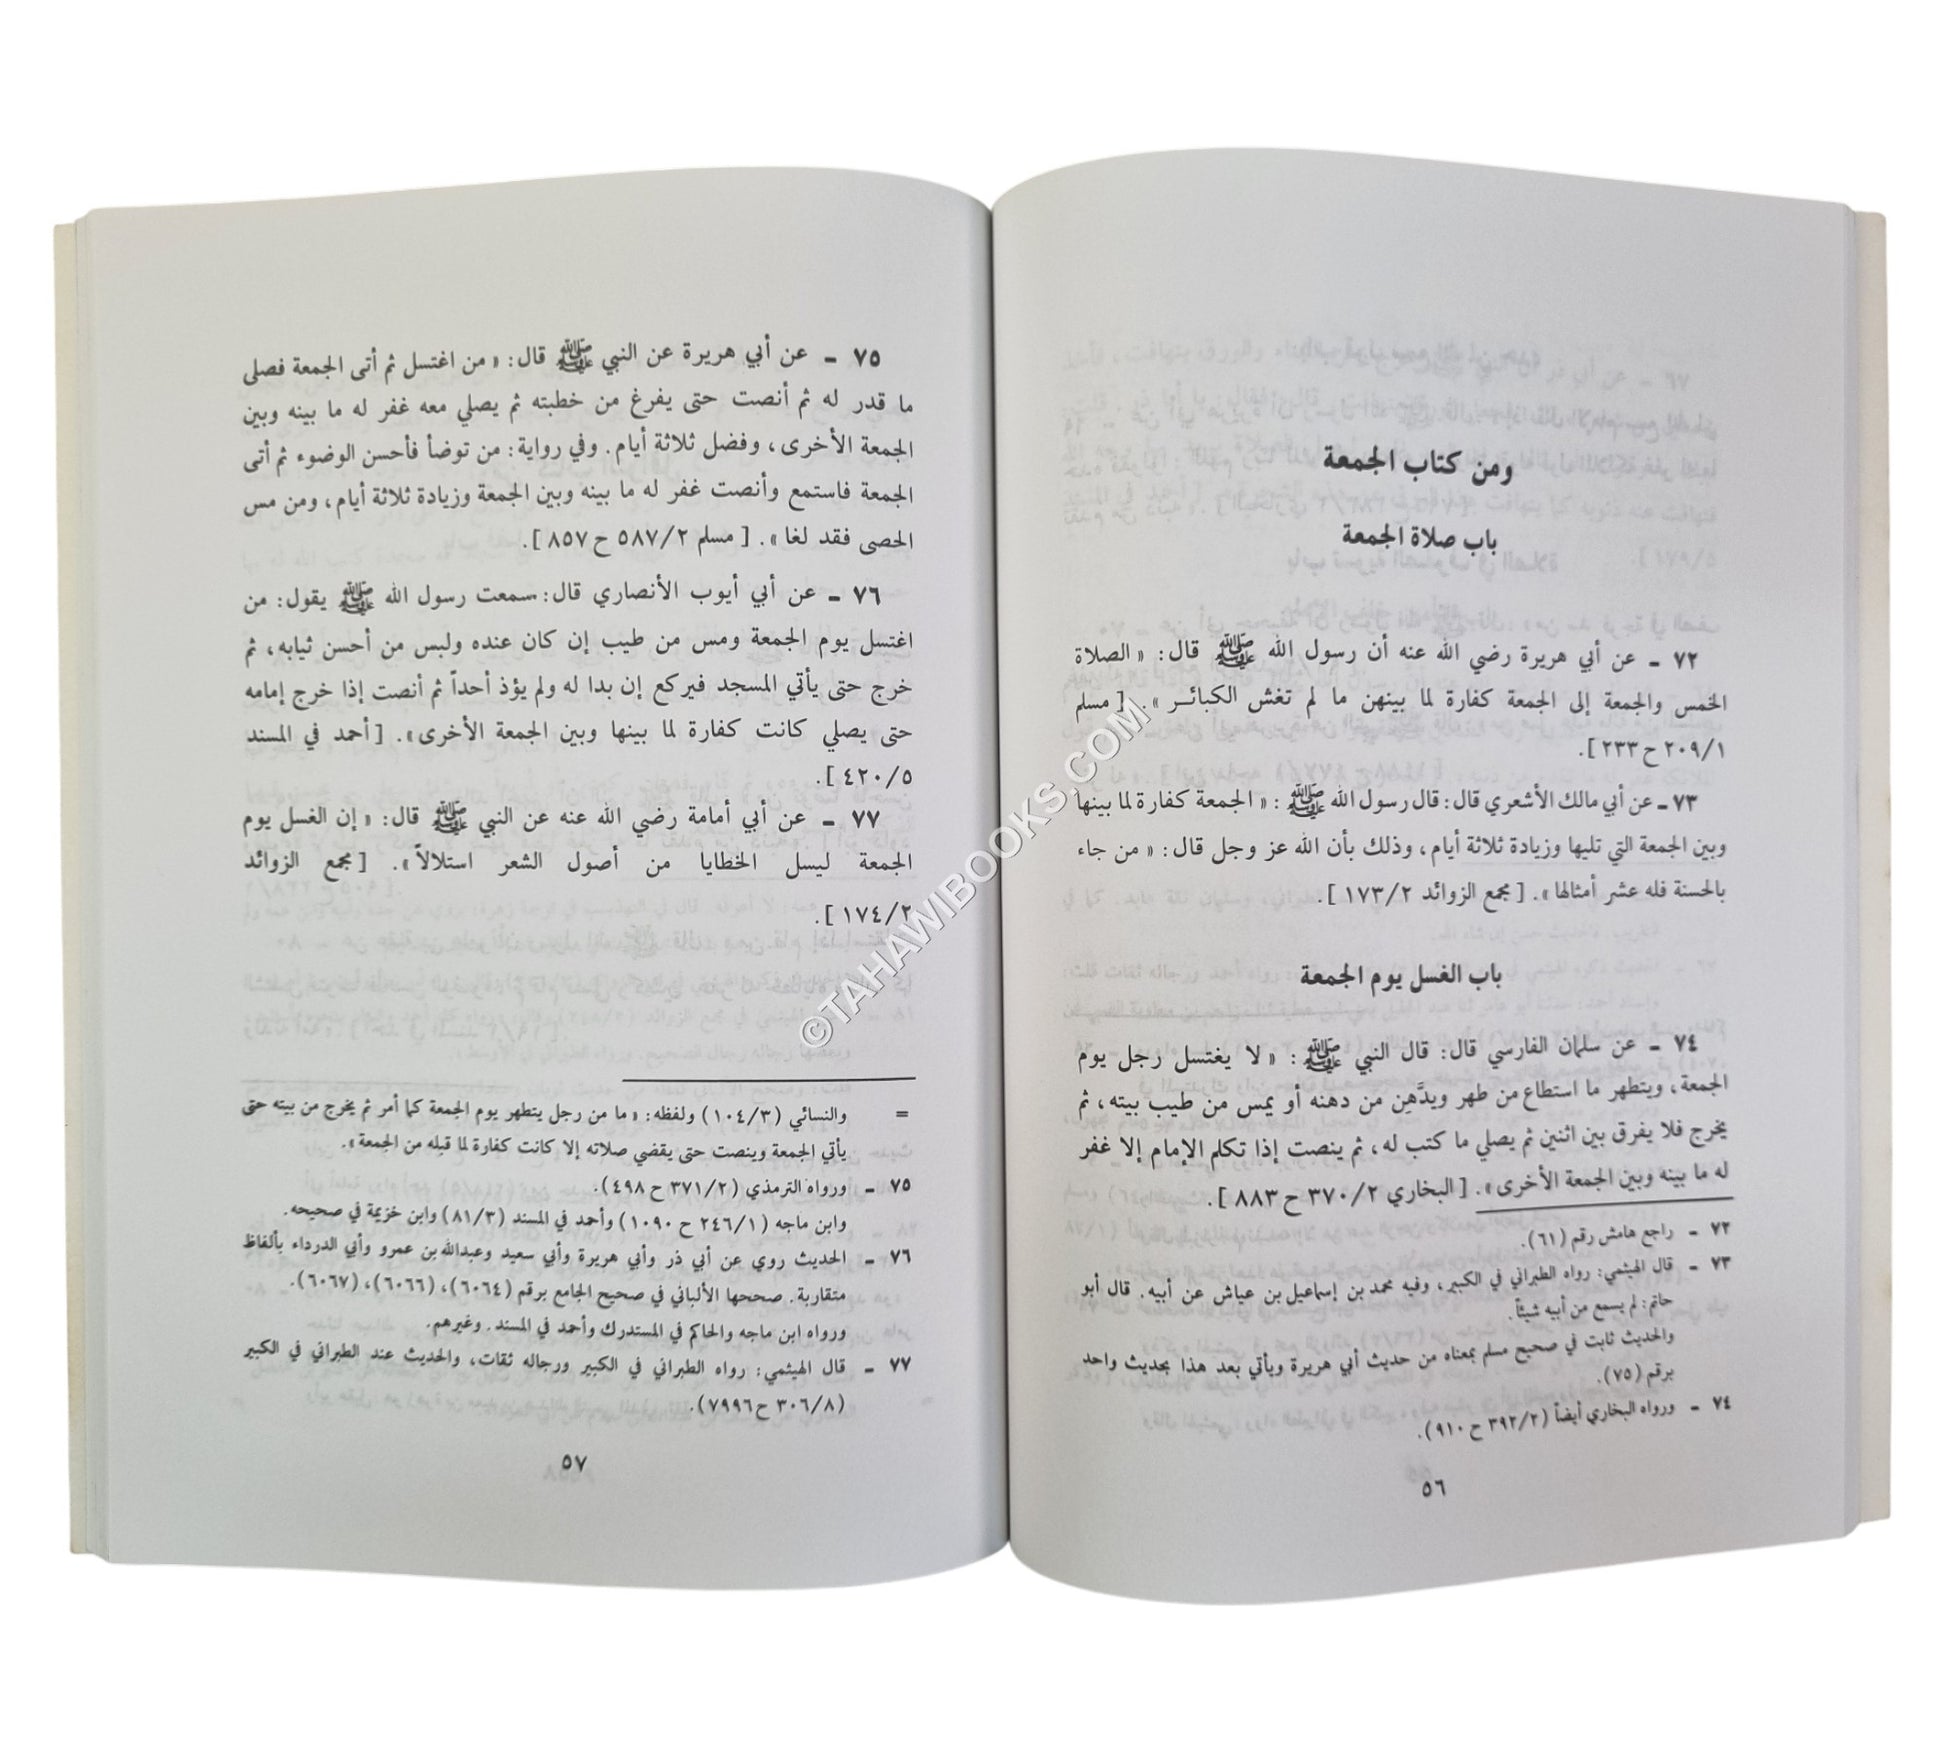 ومن كتاب الجمعة
باب صلاة الجمعة
٧٢ ـ عن أبي هريرة رضي الله عنه أن رسول الله ﷺ قال: « الصلاة
الخمس والجمعة إلى الجمعة كفارة لما بينهن ما لم تغش الكبائـر ». [ مسلم
٢٠٩/١ ح ٢٣٣ ].
٧٣ ـ عن أبي مالك الأشعري قال: قال رسول الله ﷺ : « الجمعة كفارة لما بينها
وبين الجمعة التي تليها وزيادة ثلاثة أيام، وذلك بأن الله عز وجل قال: « من جاء
بالحسنة فله عشر أمثالها». [ مجمع الزوائد ١٧٣/٢ ].
باب الغسل يوم الجمعة
٧٤ ـ عن سلمان الفارسي قال: قال النبي ﷺ : « لا يغتسل رجل يوم
الجمعة، ويتطهر ما استطاع من طهر ويدَّهِن من دهنه أو يمس من طيب بيته، ثم
يخرج فلا يفرق بين اثنين ثم يصلي ما كتب له، ثم ينصت إذا تكلم الإمام إلا غفر
له ما بينه وبين الجمعة الأخرى». [ البخاري ٣٧٠/٢ ح ٨٨٣ ].
٧٢ ـ راجع هامش رقم (٦١).
٧٣ ـ قال الهيثمي: رواه الطبراني في الكبير، وفيه محمد بن إسماعيل بن عياش عن أبيه. قال أبو
حاتم: لم يسمع من أبيه شيئاً.
والحديث ثابت في صحيح مسلم بمعناه من حديث أبي هريرة ويأتي بعد هذا بحديث واحد
برقم (٧٥).
٧٤ ـ ورواه البخاري أيضاً (٣٩٢/٢ ح ٩١٠).
٥٦
٧٥ ـ عن أبي هريرة عن النبي ﷺ قال: « من اغتسل ثم أتى الجمعة فصلى
ما قدر له ثم أنصت حتى يفرغ من خطبته ثم يصلي معه غفر له ما بينه وبين
الجمعة الأخرى، وفضل ثلاثة أيام. وفي رواية: من توضأ فأحسن الوضوء ثم أتى
الجمعة فاستمع وأنصت غفر له ما بينه وبين الجمعة وزيادة ثلاثة أيام، ومن مس
الحصى فقد لغا ». [ مسلم ٥٨٧/٢ ح ٨٥٧ ].
٧٦ ـ عن أبي أيوب الأنصاري قال: سمعت رسول الله ﷺ يقول: من
اغتسل يوم الجمعة ومس من طيب إن كان عنده ولبس من أحسن ثيابه، ثم
خرج حتى يأتي المسجد فيركع إن بدا له ولم يؤذ أحداً ثم أنصت إذا خرج إمامه
حتى يصلي كانت كفارة لما بينها وبين الجمعة الأخرى». [ أحمد في المسند
٤٢٠/٥ ].
٧٧ ـ عن أبي أمامة رضي الله عنه عن النبي ﷺ قال: « إن الغسل يوم
الجمعة ليسل الخطايا من أصول الشعر استلالاً». [ مجمع الزوائد
١٧٤/٢ ].
= والنسائي (١٠٤/٣) ولفظه: « ما من رجل يتطهر يوم الجمعة كما أمر ثم يخرج من بيته حتى
يأتي الجمعة وينصت حتى يقضي صلاته إلا كانت كفارة لما قبله من الجمعة».
٧٥ ـ ورواه الترمذي (٣٧١/٢ ح ٤٩٨).
وابن ماجه (٢٤٦/١ ح ١٠٩٠) وأحمد في المسند (٨١/٣) وابن خزيمة في صحيحه.
٧٦ ـ الحديث روي عن أبي ذر وأبي هريرة وأبي سعيد وعبدالله بن عمرو وأبي الدرداء بألفاظ
متقاربة. صححها الألباني في صحيح الجامع برقم (٦٠٦٤)، (٦٠٦٦)، (٦٠٦٧).
ورواه ابن ماجه والحاكم في المستدرك وأحمد في المسند. وغيرهم.
٧٧ ـ قال الهيثمي: رواه الطبراني في الكبير ورجاله ثقات، والحديث عند الطبراني في الكبير
(٣٠٦/٨ ح ٧٩٩٦).
٥٧
©TAHAWIBOOKS.COM